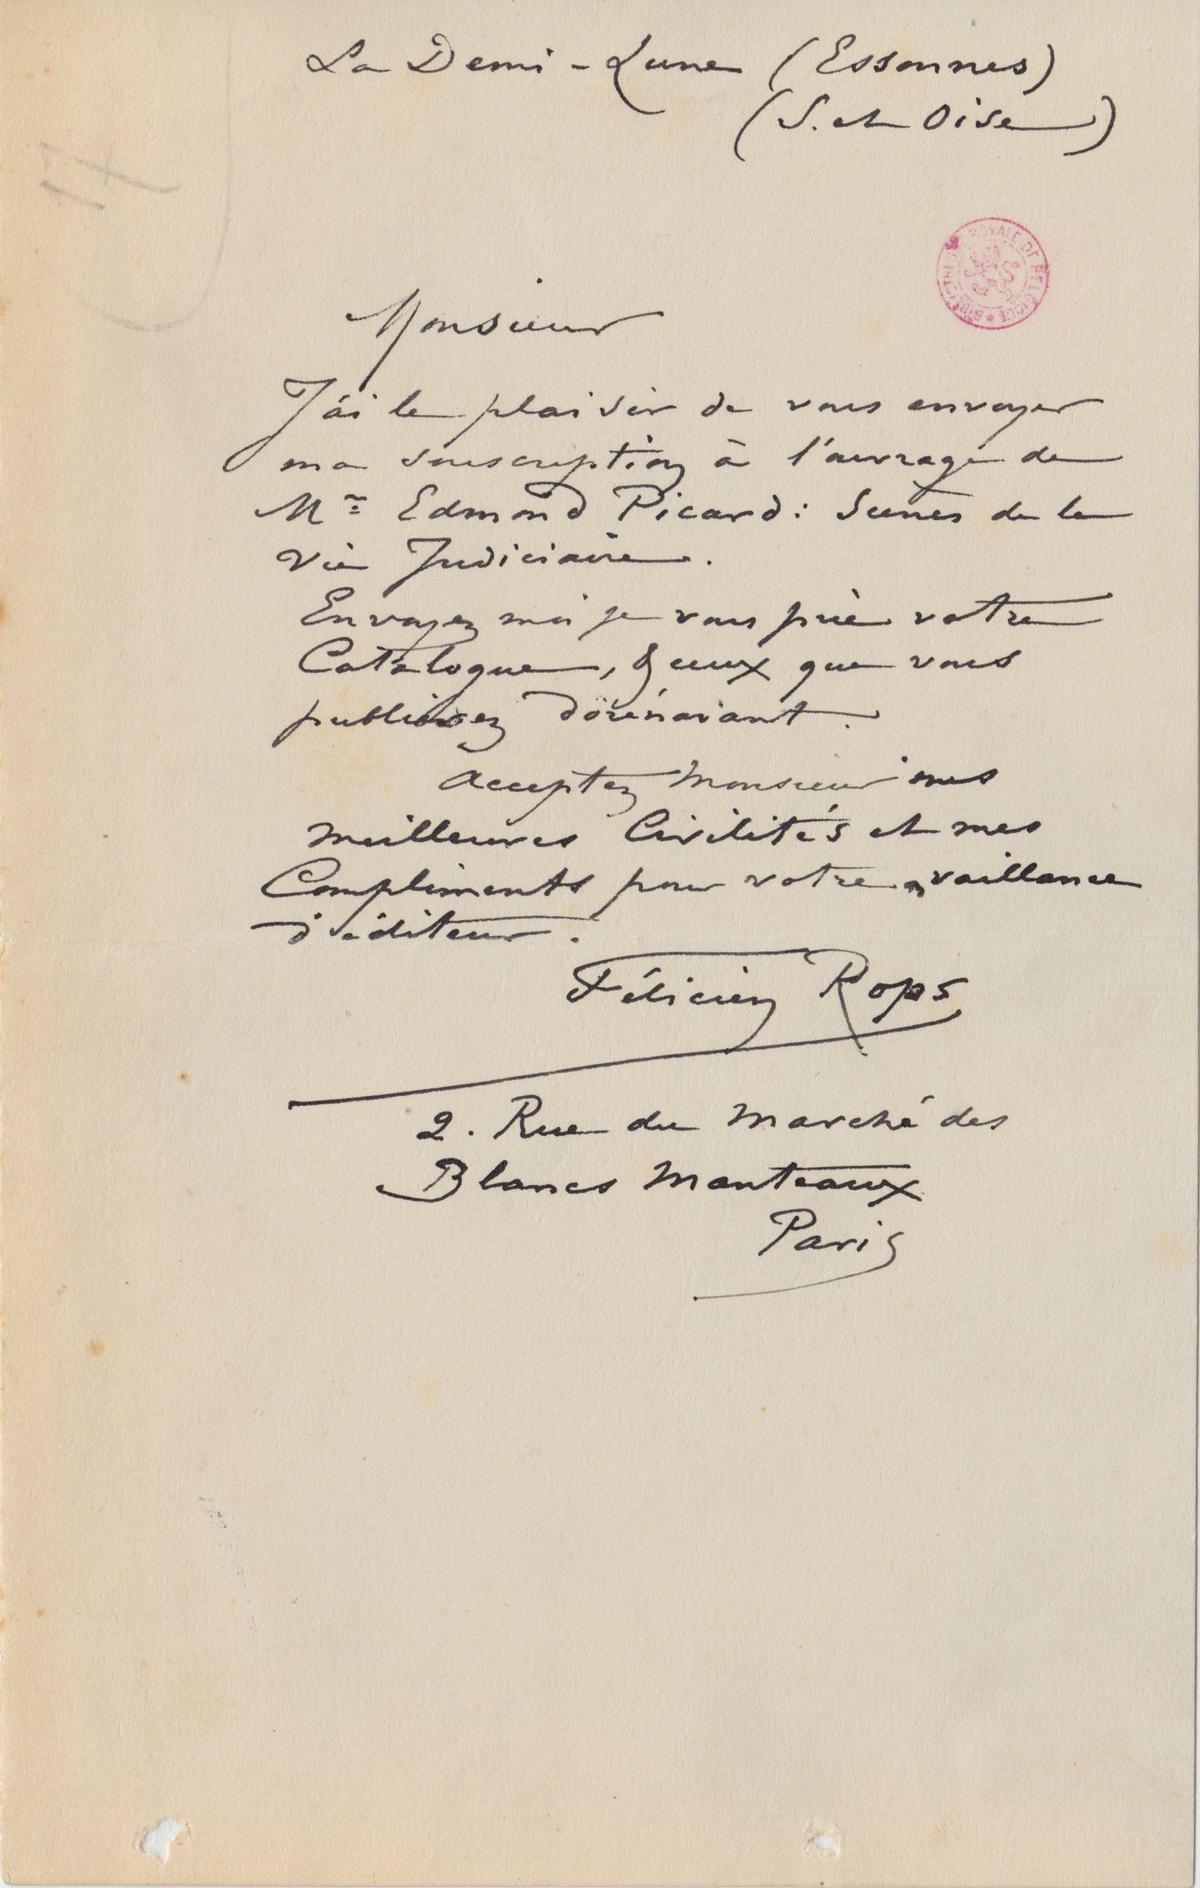 La Demi-Lune (Essonnes)
(S. et Oise)
BIBLIOTHEQUE ROYALE DE BELGIQUE
Monsieur
J'ai le plaisir de vous envoyer
ma souscription à l'ouvrage de
Mr Edmond Picard: Scènes de la
Vie Judiciaire.
Envoyez moi je vous prie votre
Catalogue, & ceux que vous
publierez dorénavant.
Acceptez Monsieur mes
meilleures Civilités et mes
Compliments pour votre vaillance
d'éditeur.
Félicien Rops
2. Rue du Marché des
Blancs Manteaux
Paris